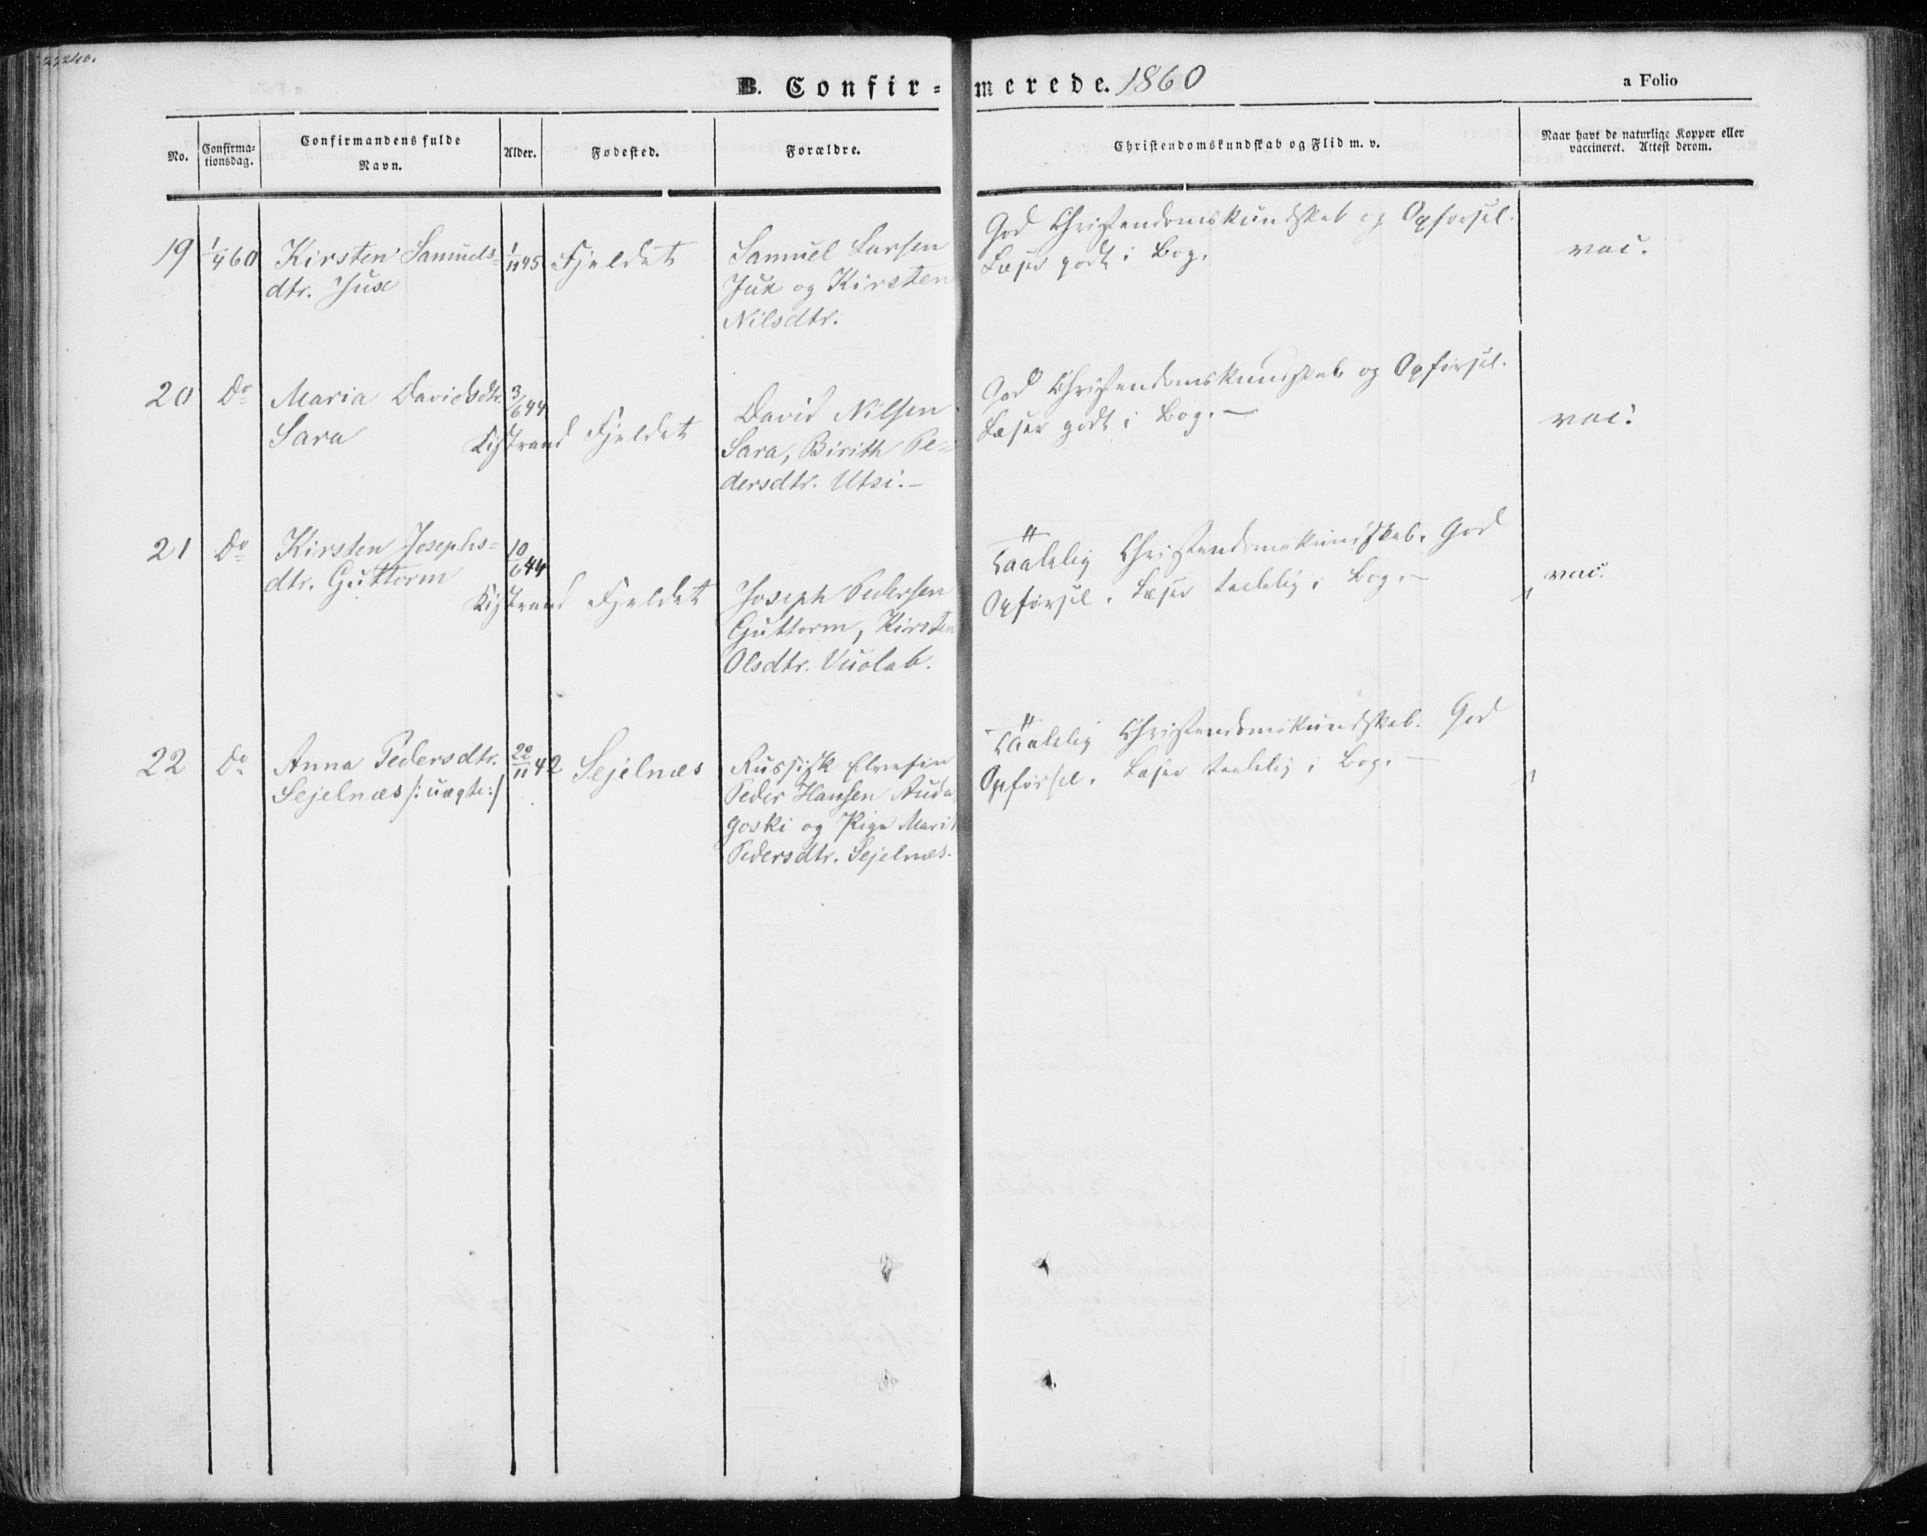 B. Confir=merede. 1860
a Folio
No.
Confirma-
tionsdag.
Confirmandens fulde
Navn.
Alder.
Fødested.
Forældre.
Christendomskundskab og Flid m. v.
Naar havt de naturlige Kopper eller
vaccineret. Attest derom.
19 1/4 60 Kirsten Samuels= 1/11 45 Fjeldet
dtr. Jux
Samuel Larsen
Jux og Kirsten
Nilsdtr.
God Christendomskundskab og Opførsel.
Læser godt i Bog.
vac.
20 Do Maria Davidsdtr. 3/6 44
Sara
Kistrand Fjeldet
David Nilsen
Sara, Birith Pe=
dersdtr. Utsi.—
God Christendomskundskab og Opførsel.
Læser godt i Bog.—
vac.
21 Do Kirsten Josephs= 10/6 44
dtr. Guttorm
Kistrand Fjeldet
Joseph Pedersen
Guttorm, Kirsten
Olsdtr. Vuolab.
Taalelig Christendomskundskab. God
Opførsel. Læser taalelig i Bog.—
vac.
22 Do Anna Pedersdtr. 22/11 42 Sejelnæs
Sejelnæs /: uægte :/
Russisk
Peder Hansen Auda
goski og Pige Marit
Pedersdtr. Sejelnæs.
Taalelig Christendomskundskab. God
Opførsel. Læser taalelig i Bog.—